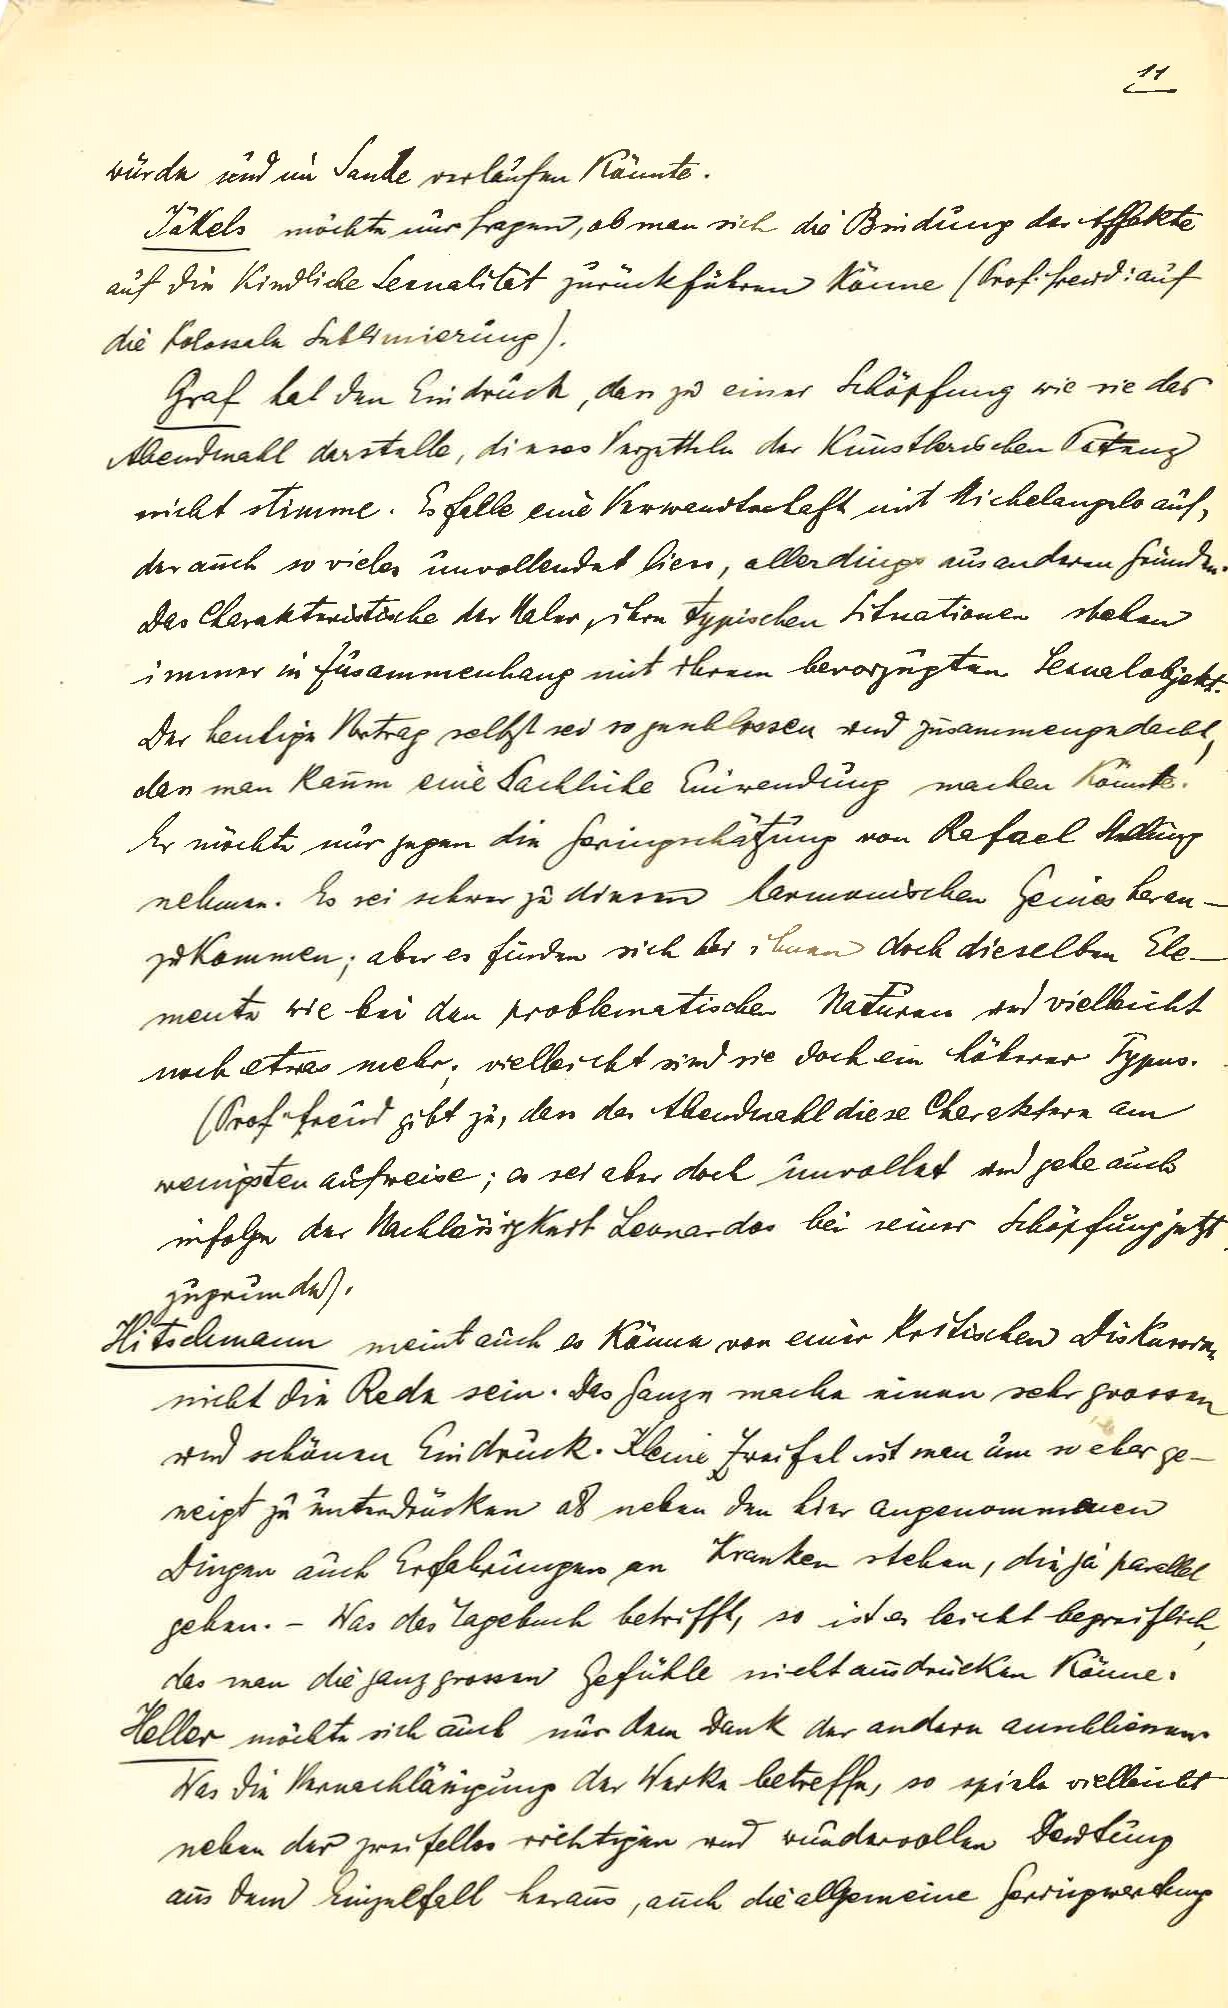 11
würde und im Sande verlaufen könnte.
Jäkels möchte nur fragen, ob man sich die Bindung der Affekte
auf die kindliche Sexualität zurückführen könne (Prof. Freud: auf
die kolossale Sublimierung).
Graf hat den Eindruck, dass zu einer Schöpfung wie sie das
Abendmahl darstelle, dieses Verzetteln der künstlerischen Potenz
nicht stimme. Es falle eine Verwandtschaft mit Michelangelo auf,
der auch so vieles unvollendet liess, allerdings aus anderen Gründen.
Das Charakteristische der Maler, ihre typischen Situationen stehen
immer in Zusammenhang mit ihrem bevorzugten Sexualobjekt.
Der heutige Vortrag selbst sei so geschlossen und zusammengedacht,
dass man kaum eine sachliche Einwendung machen könnte.
Er möchte nur gegen die Geringschätzung von Rafael Stellung
nehmen. Es sei schwer zu diesen harmonischen Genies heran-
zukommen; aber es finden sich bei ihnen doch dieselben Ele-
mente wie bei den problematischen Naturen und vielleicht
noch etwas mehr; vielleicht sind sie doch ein höherer Typus.
(Prof. Freud gibt zu, dass das Abendmahl diese Charaktere am
wenigsten aufweise; es sei aber doch unvollet und gehe auch
infolge der Nachlässigkeit Leonardos bei seiner Schöpfung jetzt
zugrunde).
Hitschmann meint auch es könne von einer kritischen Diskussion
nicht die Rede sein. Das Ganze mache einen sehr grossen
und schönen Eindruck. Kleine Zweifel ist man um so eher ge-
neigt zu unterdrücken als neben den hier angenommenen
Dingen auch Erfahrungen an Kranken stehen, die ja parallel
gehen. - Was das Tagebuch betrifft, so ist es leicht begreiflich,
das man die ganz grossen Gefühle nicht ausdrücken könne.
Heller möchte sich auch nur dem Dank der andern anschliessen.
Was die Vernachlässigung der Werke betreffe, so spiele vielleicht
neben der zweifellos richtigen und wundervollen Deutung
aus dem Einzelfall heraus, auch die allgemeine Geringwertung